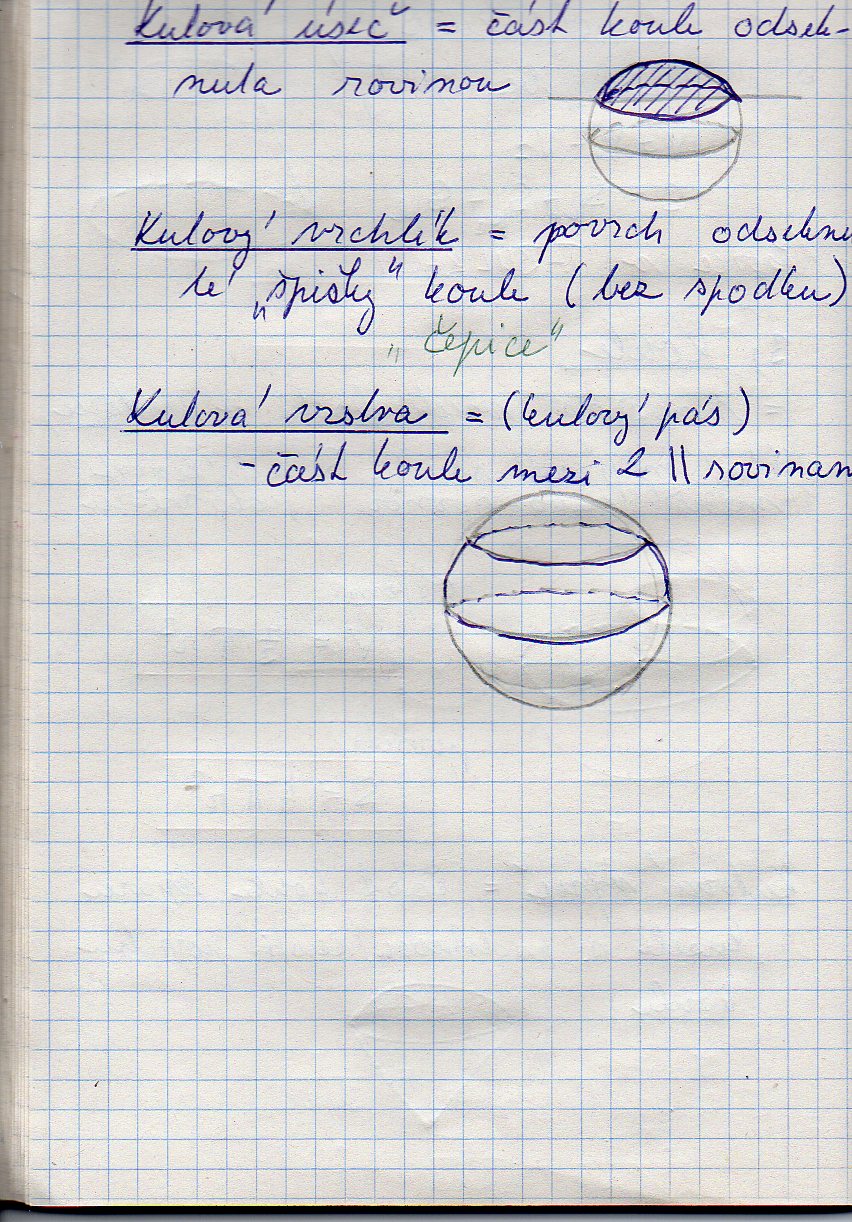 Kulová úseč = část koule odsek-
nutá rovinou
Kulový vrchlík = povrch odseknu
té „špišky“ koule (bez spodku)
„čepice“
Kulová vrstva = (kulový pás)
- část koule mezi 2 || rovinam